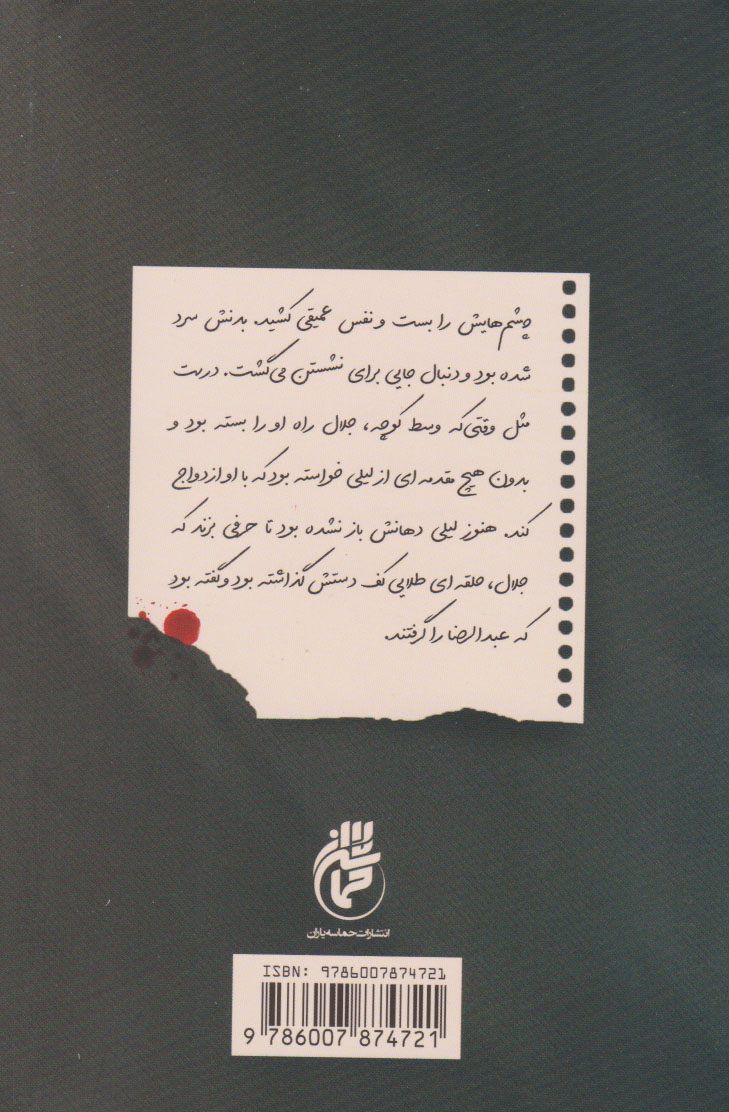 چشم‌هایش را بست و نفس عمیقی کشید. بدنش سرد
شده بود و دنبال جایی برای نشستن می‌گشت. درست
مثل وقتی که وسط کوچه، جلال راه او را بسته بود و
بدون هیچ مقدمه ای از لیلی خواسته بود که با او ازدواج
کند. هنوز لیلی دهانش باز نشده بود تا حرفی بزند که
جلال، حلقه ای طلایی کف دستش گذاشته بود و گفته بود
که عبدالرضا را گرفتند.
حماسه یاران
انتشارات حماسه یاران
ISBN: 9786007874721
9 786007 874721